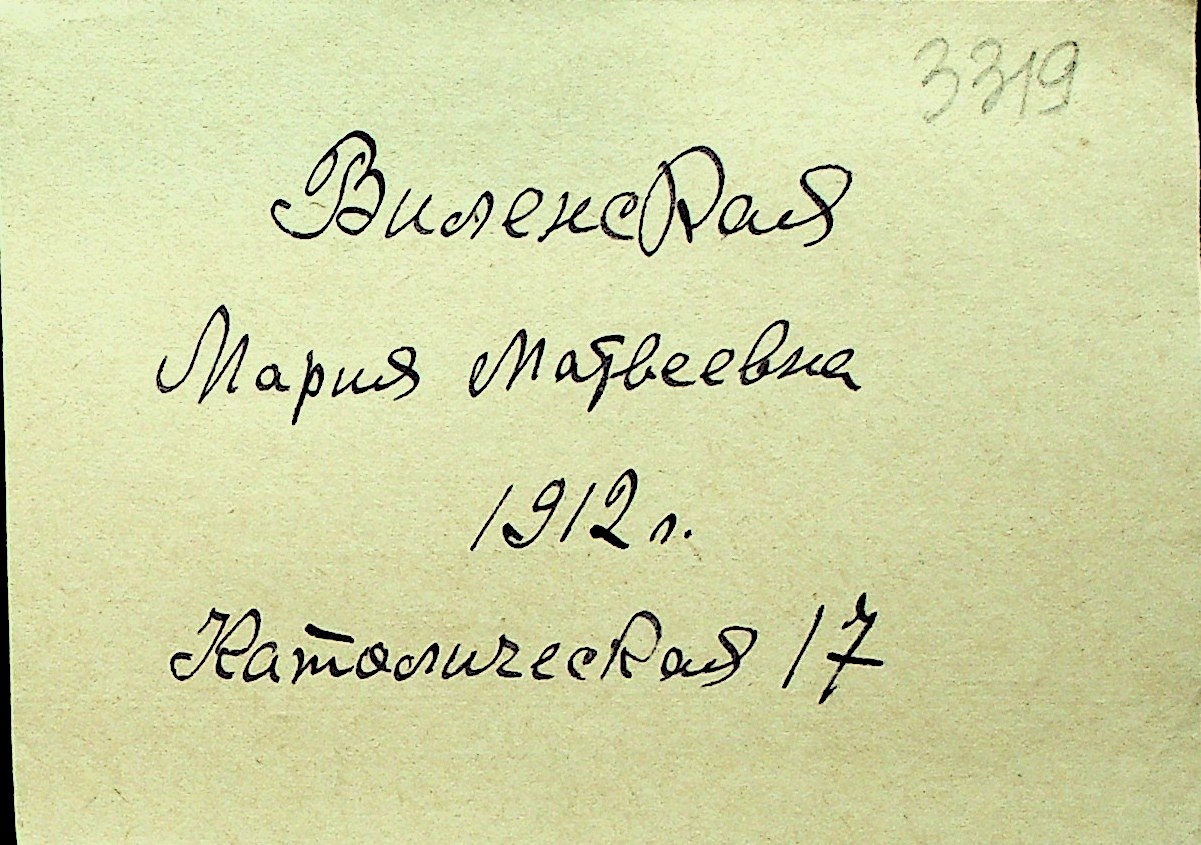 3319
Виленская
Мария Матвеевна
1912 г.
Католическая 17